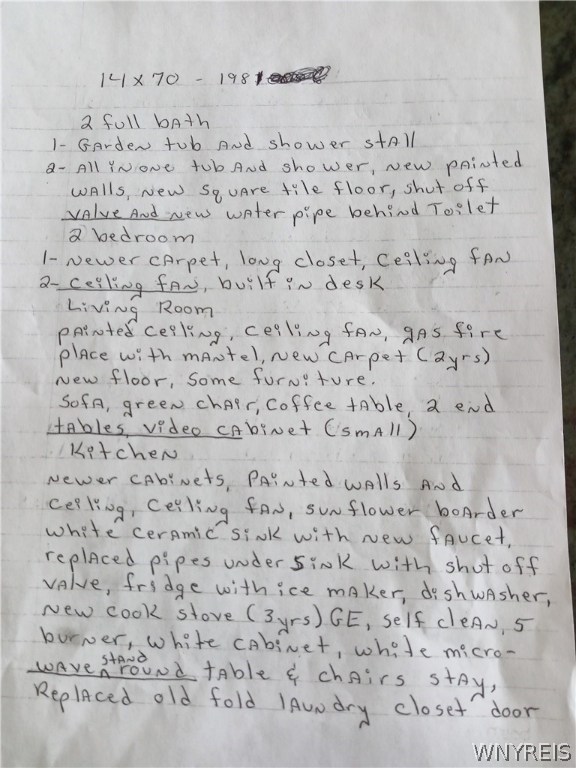 14 x 70 - 1981
2 full bath
1- Garden tub and shower stall
2- All in one tub and shower, new painted
walls, new square tile floor, shut off
valve and new water pipe behind Toilet
2 bedroom
1- newer carpet, long closet, ceiling fan
2- ceiling fan, built in desk
Living Room
painted ceiling, ceiling fan, gas fire
place with mantel, new carpet (2yrs)
new floor, some furniture.
Sofa, green chair, coffee table, 2 end
tables, video cabinet (small)
Kitchen
newer cabinets, painted walls and
ceiling, ceiling fan, sunflower boarder
white ceramic sink with new faucet,
replaced pipes under sink with shut off
valve, fridge with ice maker, dishwasher,
new cook stove (3yrs) GE, self clean, 5
burner, white cabinet, white micro-
wave stand round table & chairs stay,
Replaced old fold laundry closet door
WNYREIS